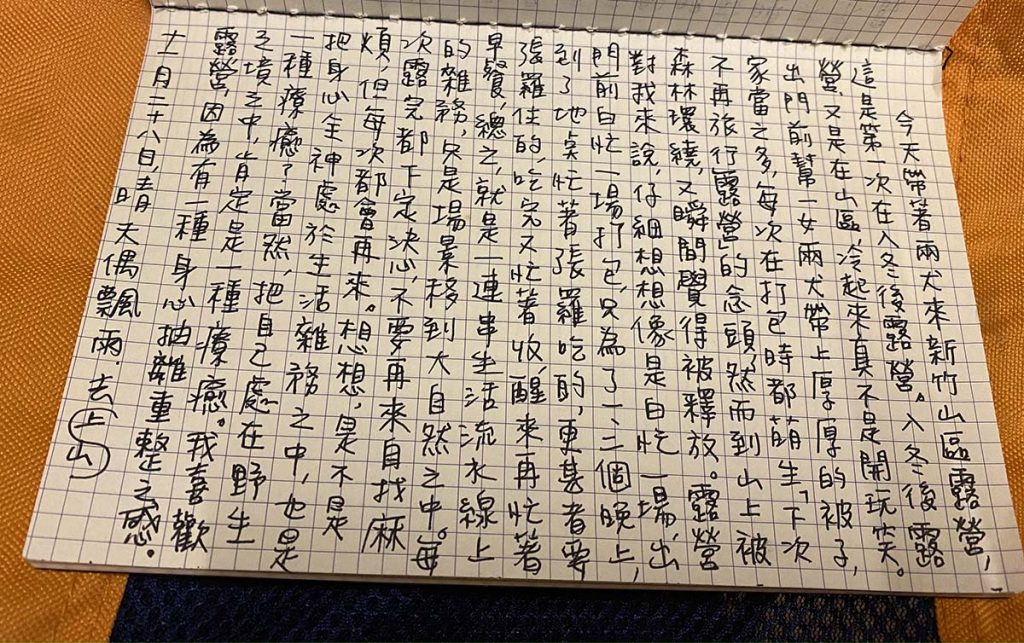 今天帶著兩犬來新竹山區露營,
這是第一次在入冬後露營。入冬後露
營,又是在山區,冷起來真不是開玩笑。
出門前幫一女兩犬帶上厚厚的被子,
家當之多,每次在打包時都萌生「下次
不再旅行露營」的念頭,然而到山上被
森林環繞,又瞬間覺得被釋放。露營
對我來說,仔細想想像是白忙一場,出
門前白忙一場打包,只為了一、二個晚上,
到了地点忙著張羅吃的,更甚者要
張羅住的,吃完又忙著收,醒來再忙著
早餐,總之,就是一連串生活流水線上
的雜務,只是場景移到大自然之中。每
次露完都下定決心,不要再來自找麻
煩,但每次都會再來。想想,是不是
把身心全神處於生活雜務之中,也是
一種療癒?當然,把自己處在野生
之境之中,肯定是一種療癒。我喜歡
露營,因為有一種身心抽離重整之感。
十一月二十八日,晴天偶飄雨.去上山